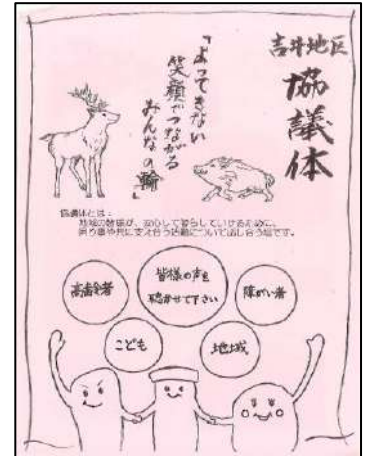 吉井地区
協議体
「よってきない
笑顔でつながる
みんなの輪」
協議体とは：
地域の皆様が、安心して暮らしていけるために、
困り事や共に支え合う活動について話し合う場です。
高齢者
皆様の声を
聴かせて下さい
障がい者
こども
地域